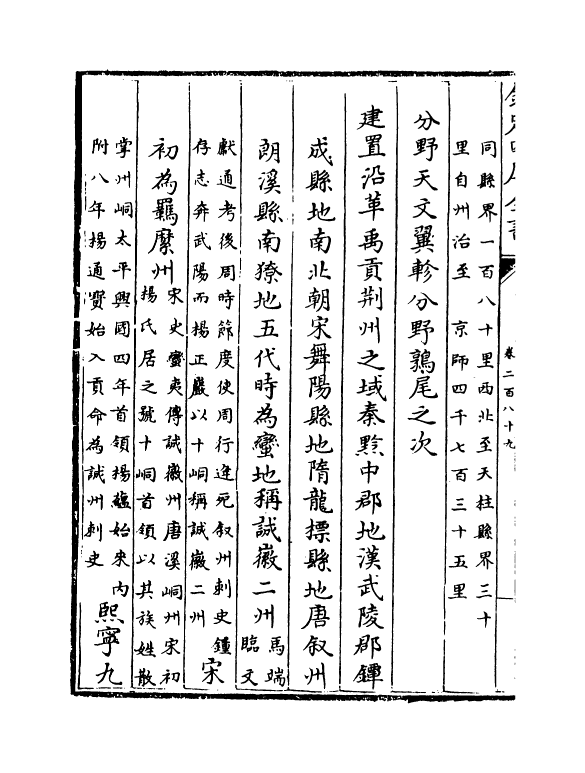 欽定四庫全書
卷二百八十九
同縣界一百八十里西北至天柱縣界三十
里自州治至 京師四千七百三十五里
分野天文翼軫分野鶉尾之次
建置沿革禹貢荆州之域秦黔中郡地漢武陵郡鐔
成縣地南北朝宋舞陽縣地隋龍摽縣地唐叙州
朗溪縣南獠地五代時為蠻地稱誠徽二州
馬端
臨文
獻通考後周時節度使周行逢死叙州刺史鍾
存志奔武陽而楊正巖以十峒稱誠徽二州
宋
初為羈縻州
宋史蠻夷傳誠徽州唐溪峒州宋初
楊氏居之號十峒首領以其族姓散
掌州峒太平興國四年首領楊蘊始來内
附八年楊通寶始入貢命為誠州刺史
熙寧九